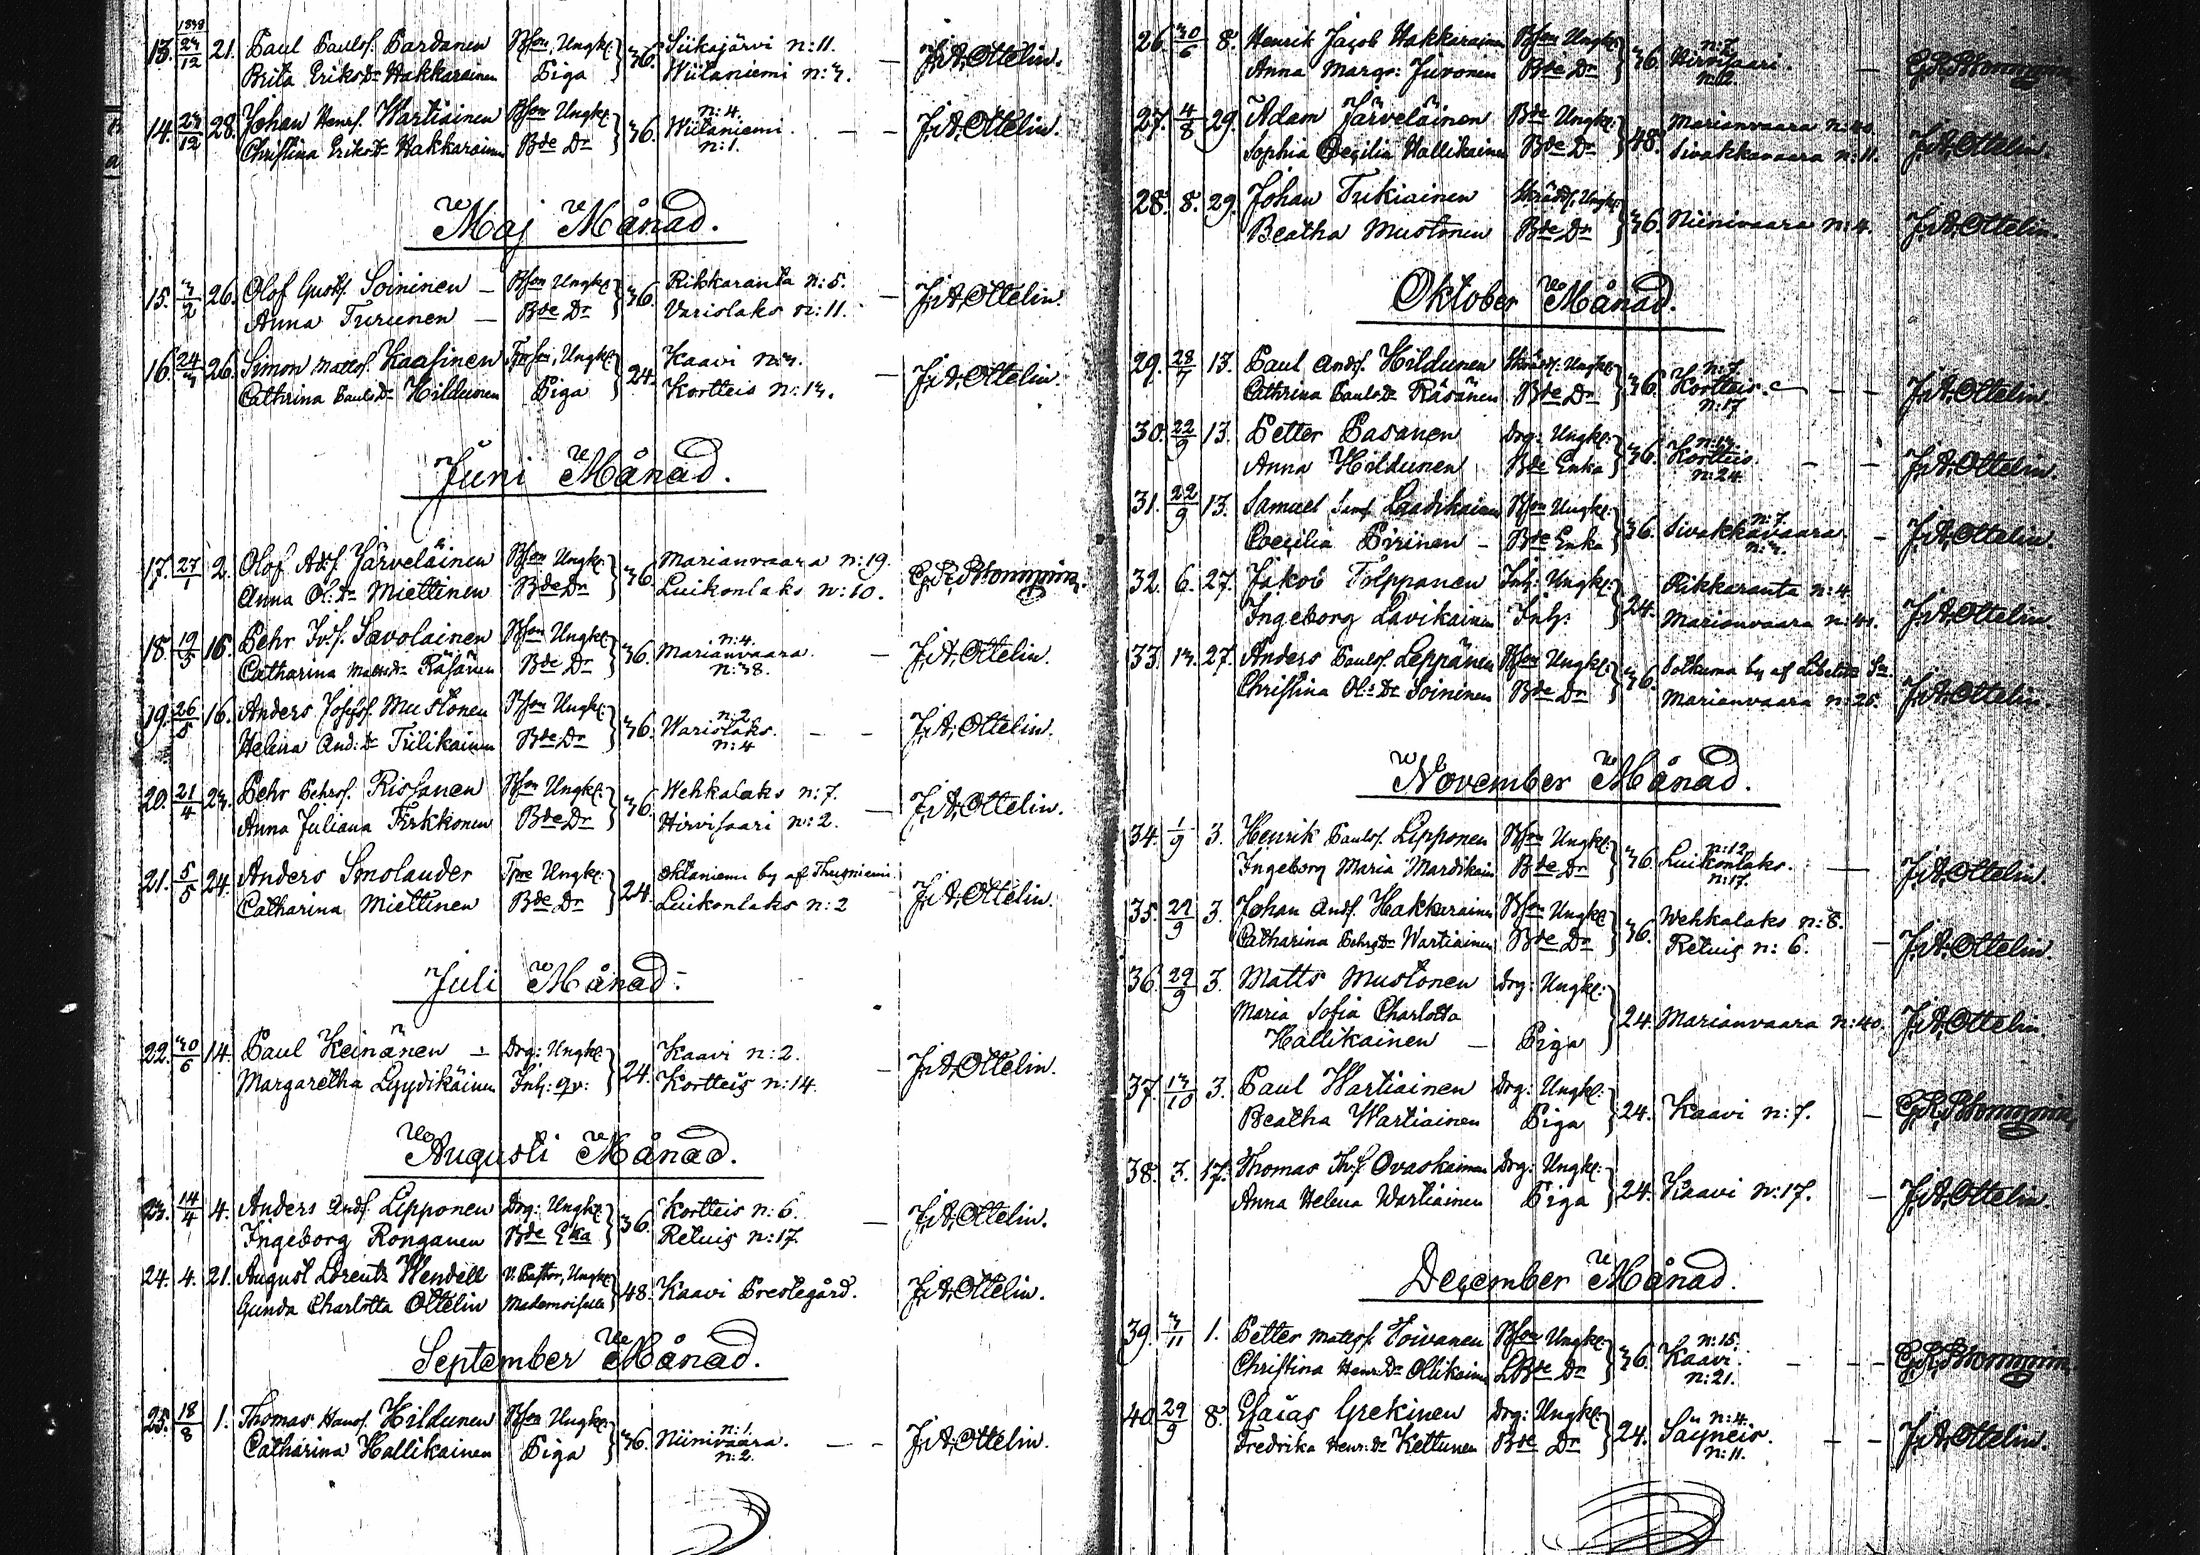 1838
13. 23/12 21. Paul Paulsf. Pardanen Bson, Ungkl: } 36. Siikajärvi n:11. — J.A. Ottelin.
Brita EriksDr Hakkarainen Piga Wiitaniemi n:3.
14. 23/12 28. Johan Henrf. Wartiainen Bson Ungkl: } 36. n:4. Wiitaniemi. — — J.A. Ottelin.
Christina EriksDr Hakkarainen Bde Dr n:1.
Maj Månad.
15. 3/2 26. Olof Gustf. Soininen — Bson Ungkl: } 36. Rikkaranta n:5. — J.A. Ottelin.
Anna Turunen — Bde Dr Varislaks n:11.
16. 24/3 26. Simon Mattsf. Kaasinen Tprson, Ungkl: } 24. Kaavi n:3. — J.A. Ottelin.
Cathrina PaulsDr Hildunen Piga Kortteis n:13.
Juni Månad.
17. 27/1 2. Olof Adf. Järveläinen Bson Ungkl: } 36. Marianvaara n:19.
Anna Ol:Dr Miettinen Bde Dr Luikonlaks n:10.
18. 19/5 16. Pehr Ivf. Savolainen Bson Ungkl: } 36. n:4. Marianvaara. — J.A. Ottelin.
Catharina MattsDr Räsänen Bde Dr n:38.
19. 26/5 16. Anders Josefsf. Mustonen Bson Ungkl: } 36. n:2. Warislaks. — — J.A. Ottelin.
Helena And:Dr Tiilikainen Bde Dr n:4
20. 21/4 23. Pehr Pehrsf. Rissanen Bson Ungkl: } 36. Wehkalaks n:7. — J.A. Ottelin.
Anna Juliana Pirkkonen Bde Dr Hirvisaari n:2.
21. 5/5 24. Anders Smolander Tpre Ungkl: } 24. by af J.A. Ottelin.
Catharina Miettinen Bde Dr Luikonlaks n:2
Juli Månad.
22. 30/6 14. Paul Keinänen — Drg: Ungkl: } 24. Kaavi n:2. — J.A. Ottelin.
Margaretha Lyydikäinen Inh: qv: Kortteis n:14.
Augusti Månad.
23. 14/4 4. Anders Andf. Lipponen Drg: Ungkl: } 36. Kortteis n:6. — J.A. Ottelin.
Ingeborg Ronganen Bde Eka Retuis n:17.
24. 4. 21. August Lorentz Wendell V. Pastor, Ungkl: } 48. Kaavi Prestegård. J.A. Ottelin.
Gunda Charlotta Ottelin Mademoiselle
September Månad.
25. 18/8 1. Thomas Hansf. Hildunen Bson Ungkl: } 36. n:1. Niinivaara. — — J.A. Ottelin.
Catharina Hallikainen Piga n:2.
26. 30/6 8. Henrik Jacob Hakkarainen Bson Ungkl: } 36. n:7. Hirvisaari. —
Anna Margr: Juvonen Bde Dr n:2.
27. 4/8 29. Adam Järveläinen Bde Ungkl: } 48. Marianvaara n:40. J.A. Ottelin.
Sophia Cecilia Hallikainen Bde Dr Sivakkavaara n:11.
28. 8. 29. Johan Tukiainen Skrädd, Ungkl: } 36. Niinivaara n:4. J.A. Ottelin.
Beatha Mustonen Bde Dr
Oktober Månad.
29. 28/7 13. Paul Andf. Hildunen Skrädd. Ungkl: } 36. n:7. Kortteis. — — J.A. Ottelin.
Cathrina PaulsDr Räsänen Bde Dr n:17.
30. 22/9 13. Petter Pasanen Drg: Ungkl: } 36. n:13. Kortteis. — — J.A. Ottelin.
Anna Hildunen Bde Enka n:24.
31. 22/9 13. Samuel Samf Laadikainen Bson Ungkl: } 36. n:7. Sivakkavaara — J.A. Ottelin.
Coecilia Pirinen — Bde Enka n:3.
32. 6. 27. Jakob Tolppanen Inh: Ungkl: } 24. Rikkaranta n:4. J.A. Ottelin.
Ingeborg Lavikainen Inh: Marianvaara n:41.
33. 13. 27. Anders Paulsf. Leppänen Bson Ungkl: } 36. Sotkuma by af Libelits Sn J.A. Ottelin.
Christina Ol:Dr Soininen Bde Dr Marianvaara n:25.
November Månad.
34. 1/9 3. Henrik Paulsf. Lipponen Bson Ungkl: } 36. n:12. Luikonlaks. — J.A. Ottelin.
Ingeborg Maria Mardikain Bde Dr n:17.
35. 29/9 3. Johan Andf. Hakkarainen Bson Ungkl: } 36. Wehkalaks n:8. — J.A. Ottelin.
Catharina PehrsDr Wartiainen Bde Dr Retuis n:6.
36. 29/9 3. Matts Mustonen Drg: Ungkl: } 24. Marianvaara n:40. J.A. Ottelin
Maria Sofia Charlotta
Hallikainen — Piga
37. 13/10 3. Paul Wartiainen Drg: Ungkl: } 24. Kaavi n:7. —
Beatha Wartiainen Piga
38. 3. 17. Thomas Th:f Ovaskainen Drg: Ungkl: } 24. Kaavi n:17. — J.A. Ottelin.
Anna Helena Wartiainen Piga
December Månad.
39. 3/11 1. Petter Mattsf. Toivanen Bson Ungkl: } 36. n:15. Kaavi. — —
Christina HenrDr Ollikainen LBde Dr n:21.
40. 29/9 8. Esaias Grekinen Drg: Ungkl: } 24. n:4. Säyneis. — — J.A. Ottelin.
Fredrika Henr:Dr Kettunen Bde Dr n:11.